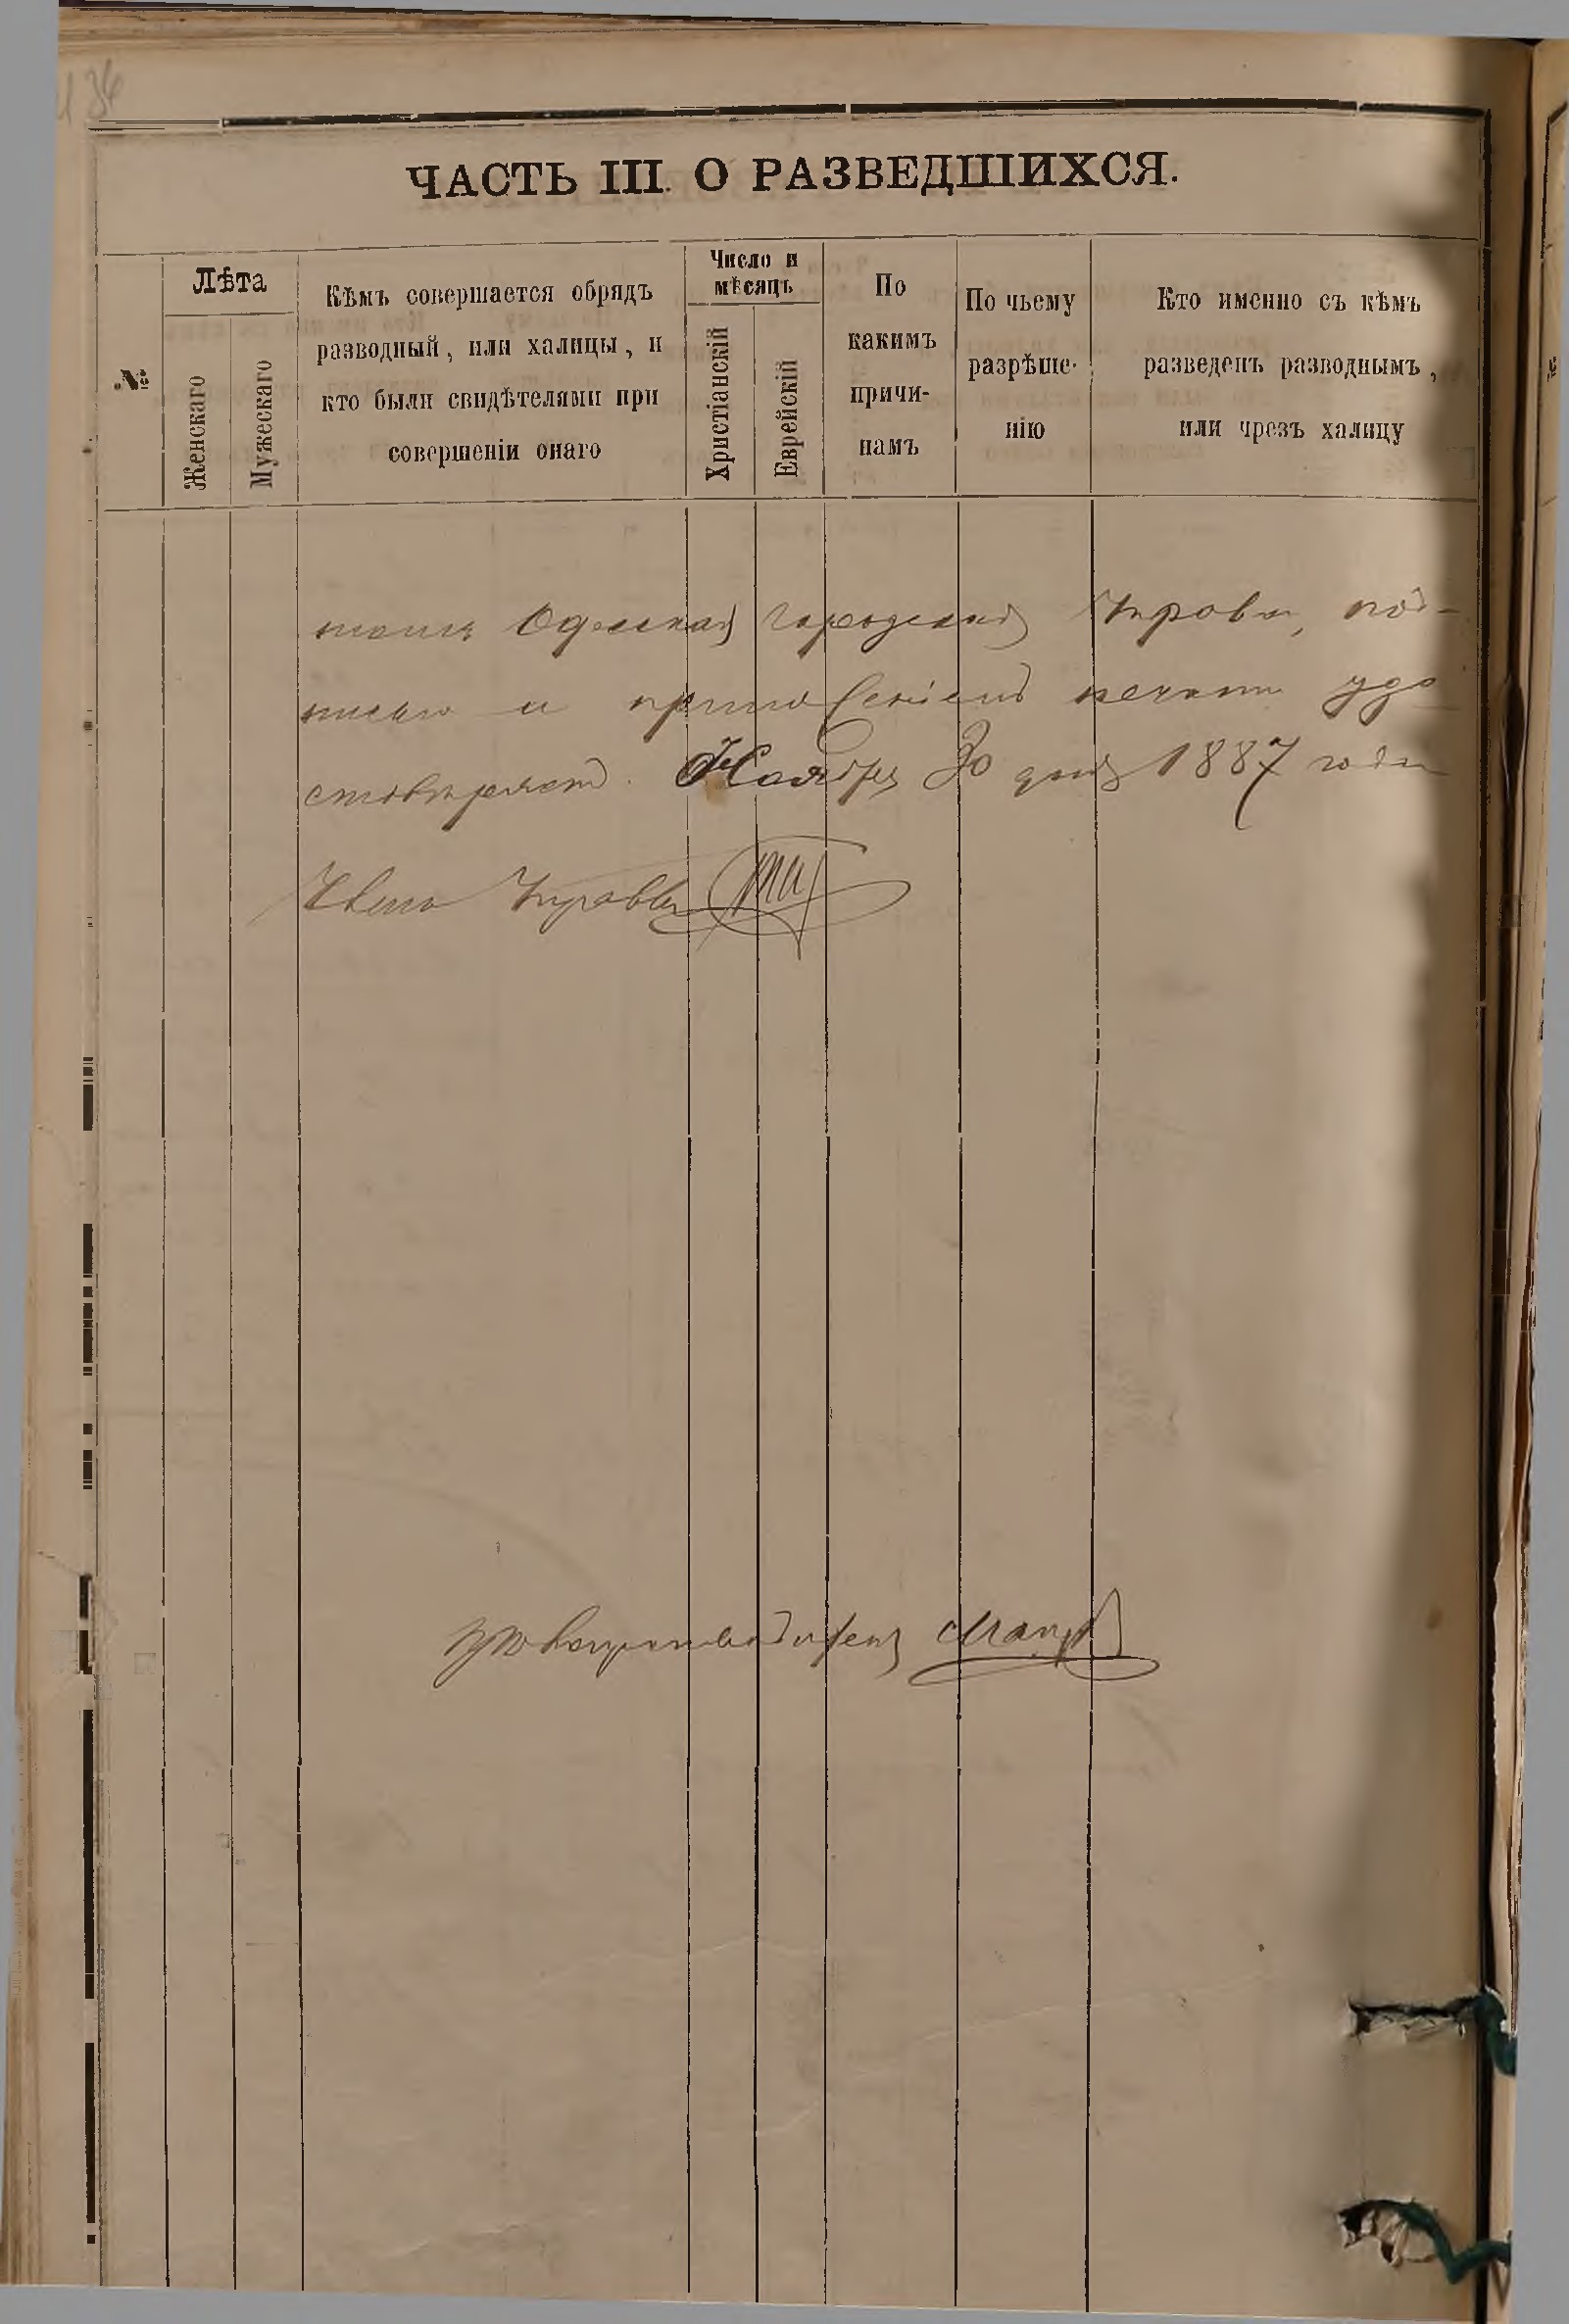 134
ЧАСТЬ III. О РАЗВЕДШИХСЯ.
№
Лѣта
Женскаго
Мужескаго
Кѣмъ совершается обрядъ
разводный, или халицы, и
кто были свидѣтелями при
совершеніи онаго
Число и
мѣсяцъ
Христіанскій
Еврейскій
По
какимъ
причи-
намъ
По чьему
разрѣше-
нію
Кто именно съ кѣмъ
разведенъ разводнымъ,
или чрезъ халицу
Одесская Городская Управа, под-
писью и приложеніемъ печати удо-
стовѣряетъ. Ноября 30 дня 1887 года
Членъ Управы